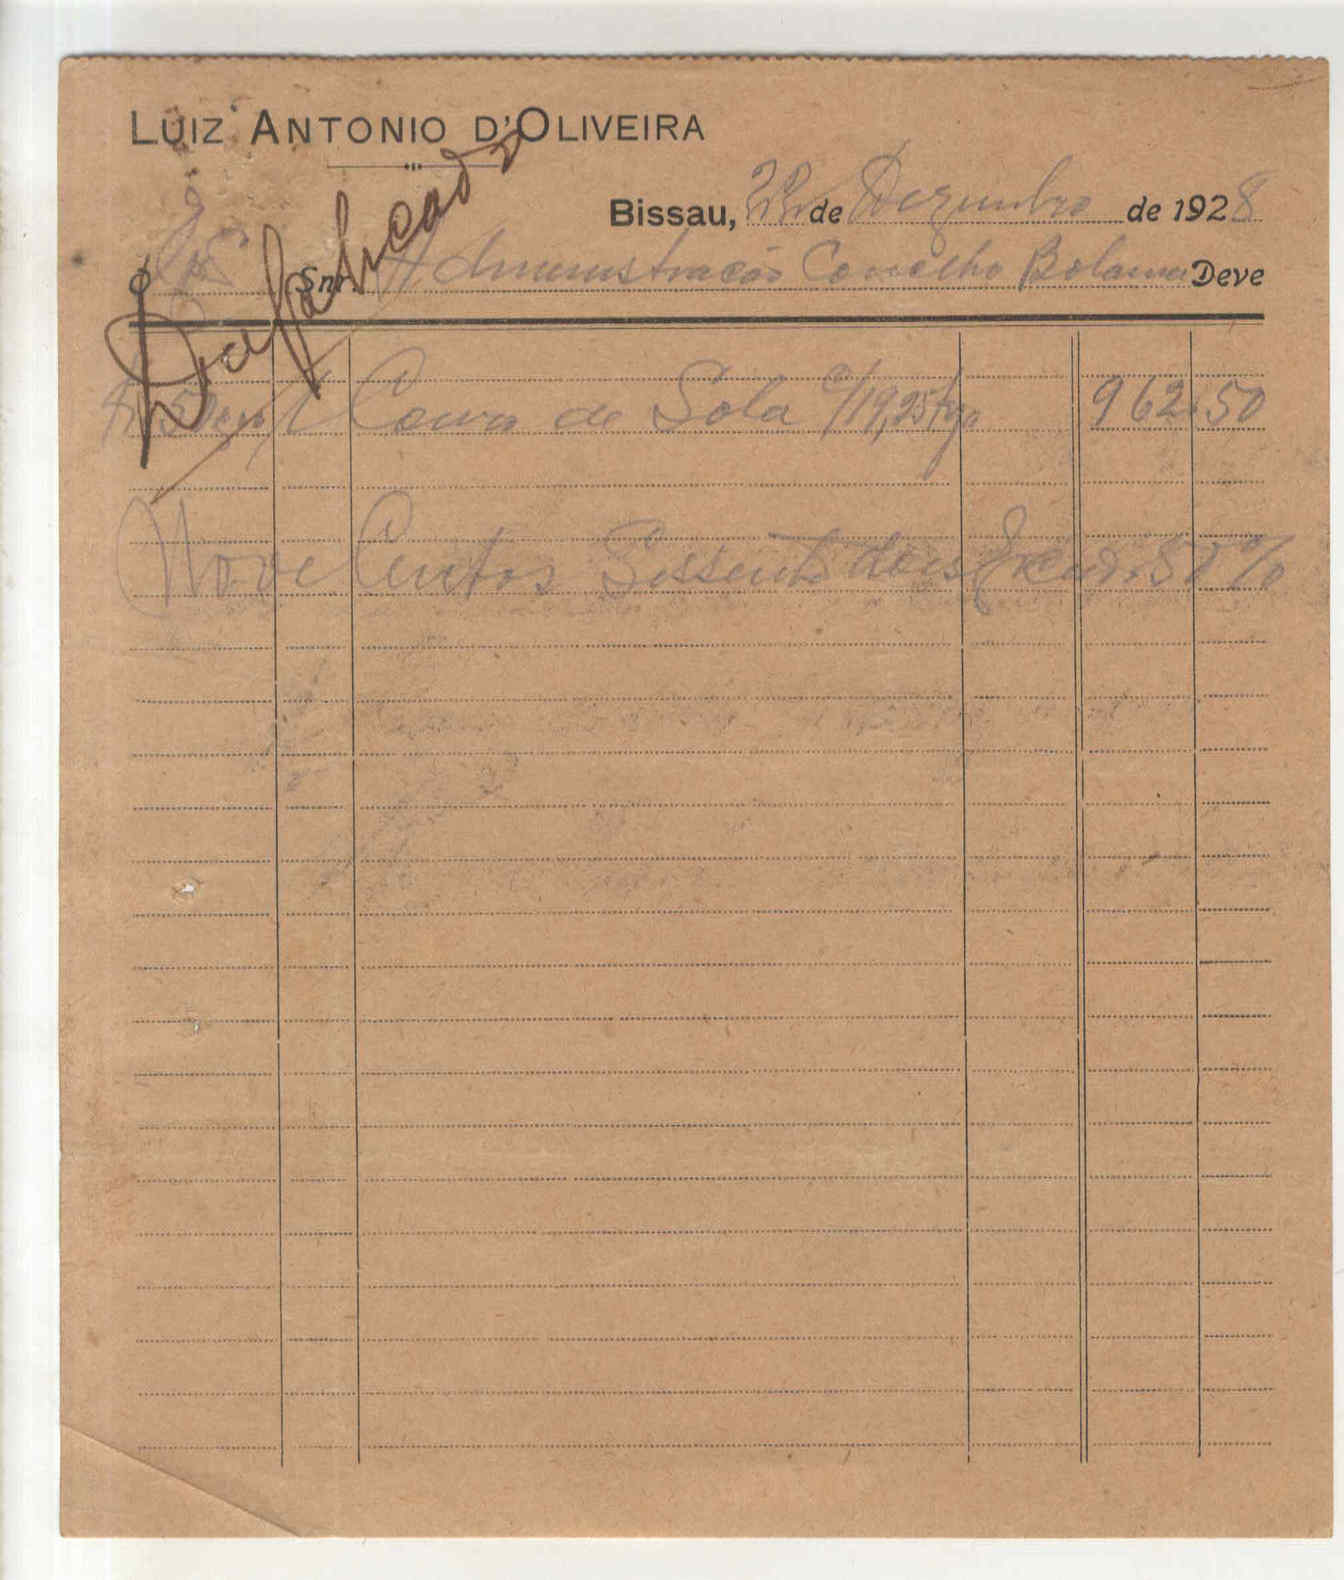 LUIZ ANTONIO D'OLIVEIRA
Bissau, 22 de Dezembro de 1928
O Snr. Administração Concelho Bolama Deve
Duplicado
1 Couro de Sola c/19,25 kgs 962.50
Nove Centos Sessenta dois Escud. 50 %